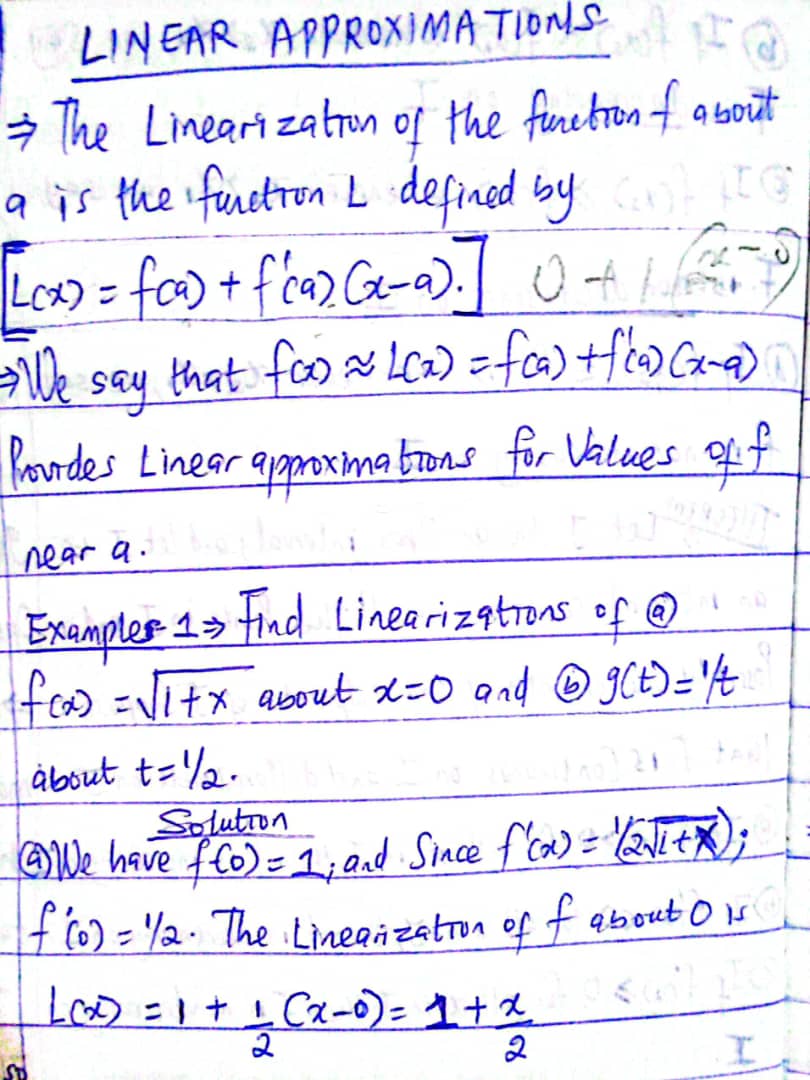 LINEAR APPROXIMATIONS
⇒ The Linearization of the function f about
a is the function L defined by
[L(x) = f(a) + f'(a)(x-a).]
⇒ We say that f(x) ≈ L(x) = f(a) + f'(a)(x-a)
Provides Linear approximations for Values of f
near a.
Examples 1 ⇒ Find Linearizations of ⓐ
f(x) = √1+x about x=0 and ⓑ g(t) = 1/t
about t=1/2.
Solution
ⓐ We have f(0) = 1; and Since f'(x) = 1/(2√1+x);
f'(0) = 1/2. The Linearization of f about 0 is
L(x) = 1 + 1/2 (x-0) = 1 + x/2